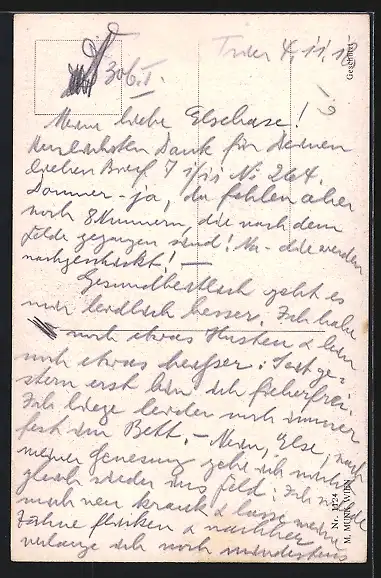 306. I.
Trier 4. 11. 18
Geschützt
Meine liebe Elschase!
Herzlichsten Dank für Deinen
lieben Brief 7 1/11 Nr. 264.
Donner - ja, da fehlen aber
noch 8 Nummern, die nach dem
Felde gegangen sind! Na - die werden
nachgeschickt! -
Gesundheitlich geht es
mir leidlich besser. Ich habe
noch etwas Husten & bin
noch etwas heiser. Seit ge-
stern erst bin ich fieberfrei.
Ich liege leider noch immer
fest im Bett. - Nein, Else, nach
meiner Genesung gehe ich nicht
gleich wieder ins Feld. Ich
mich neu krank & lasse meine
Zähne flicken & nachher
verlange ich noch mindestens
Nr. 1124
M. MUNK, WIEN